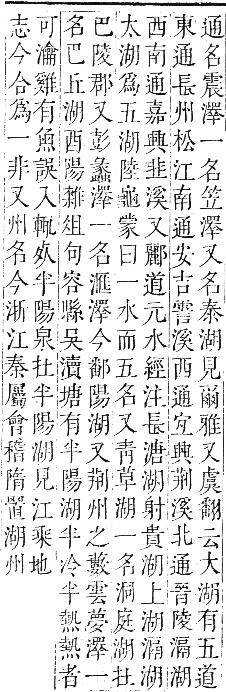 通名震澤一名笠澤又名泰湖見爾雅又虞翻云大湖有五道
東通長州松江南通安吉霅溪西通宜興荆溪北通晉陵滆湖
西南通嘉興韭溪又酈道元水經注長溏湖射貴湖上湖滆湖
太湖為五湖陸龜蒙曰一水而五名又靑草湖一名洞庭湖在
巴陵郡又彭蠡澤一名滙澤今鄱陽湖又荆州之藪雲夢澤一
名巴丘湖酉陽雜俎句容縣吳瀆塘有半陽湖半冷半熱熱者
可瀹雞有魚誤入輒㱠半陽泉在半陽湖見江乘地
志今合為一非又州名今浙江秦屬會稽隋置湖州